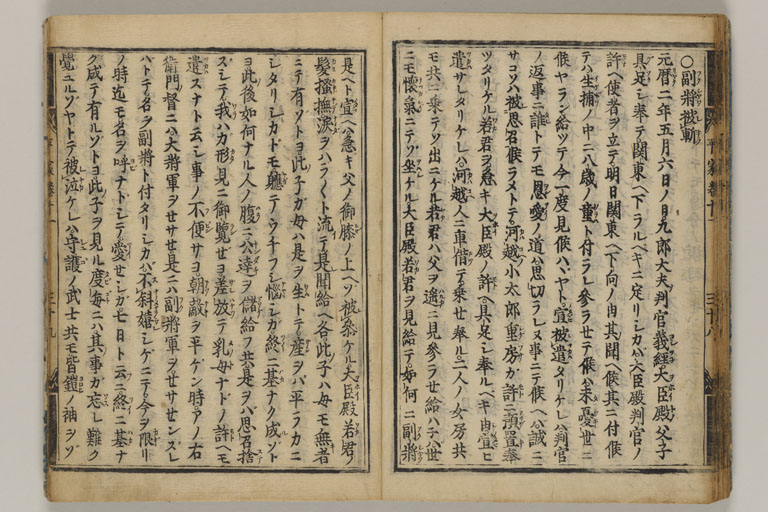 ○副將被斬
元暦二年五月六日ノ日九郎大夫判官義經大臣殿父子
具足シ奉テ関東ヘ下ラルベキニ定リシカバ大臣殿判官ノ
許ヘ使者ヲ立テ明日関東ヘ下向ノ由其聞ヘ候其ニ付候
テハ生捕ノ中ニ八歳ノ童ト付ラレ參ラセテ候ハ未憂世ニ
候ヤラン給ツテ今一度見候ハヾヤト宣被遣タリケレハ判官
ノ返事ニ誰トテモ恩愛ノ道ハ思切ラレヌ事ニテ候ヘハ誠ニ
サコソハ被思召候ラメトテ河越小太郎重房カ許ニ預置奉
ツタリケル若君ヲ急キ大臣殿ノ許ヘ具足シ奉ルヘキ由宣ヒ
遣サレタリケレハ河越人ニ車借テ乗セ奉ル二人ノ女房共
モ共ニ乗テソ出ニケル若君ハ父ヲ遙ニ見參ラセ給ハ子ハ世
ニモ懐氣ニテソ坐ケル大臣殿若君ヲ見給テ如何ニ副將
是ヘト宣ヘハ急キ父ノ御膝ノ上ヘソ被參ケル大臣殿若君ノ
髪掻撫涙ヲハラ〱ト流テ是聞給ヘ各此子ハ母モ無者
ニテ有ソトヨ此子ガ母ハ是ヲ生トテ産ヲバ平ラカニ
シタリシカドモ軈テウチフシ惱シガ終ニ墓ナク成ソト
ヨ此後如何ナル人ノ腹ニ公達ヲ儲給フ共是ヲハ思召捨
スシテ我カ形見ニ御覽セヨ差放テ乳母ナトノ許ヘモ
遣スナト云シ事ノ不便サヨ朝敵ヲ平ケン時アノ右
衛門督ニハ大將軍ヲセサセ是ニハ副將軍ヲセサセンスレ
ハトテ名ヲ副將ト付タリシカハ不斜嬉シゲニテ今ヲ限リ
ノ時迄モ名ヲ呼ナトシテ愛セシガ七日ト云ニ終ニ墓ナ
ク成テ有ルゾトヨ此子ヲ見ル度毎ニハ其事カ忘レ難ク
覺ユルゾヤトテ被泣ケレハ守護ノ武士共モ皆鎧ノ袖ヲゾ
平家巻十一
三十八
平家巻十一
三十九